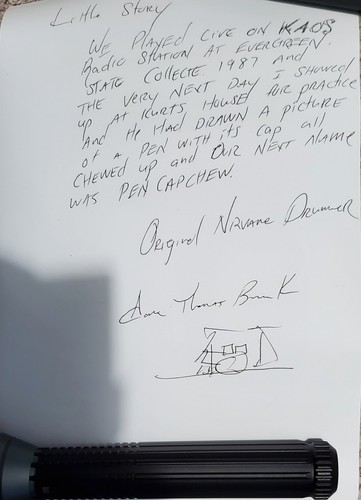 Little Story
WE PLAYED LIVE ON KAOS
Radio STATION AT EVERGREEN
STATE COLLECTE 1987 and
THE VERY NEXT DAY I SHOWED
up AT KURTS HOUSE FOR PRACTICE
AND HE HAD DRAWN A PICTURE
OF A PEN WITH its CAP all
CHEWED up and OUR NEXT NAME
WAS PEN CAPCHEW.
Original NIRVANA DRUMMER
Thomas